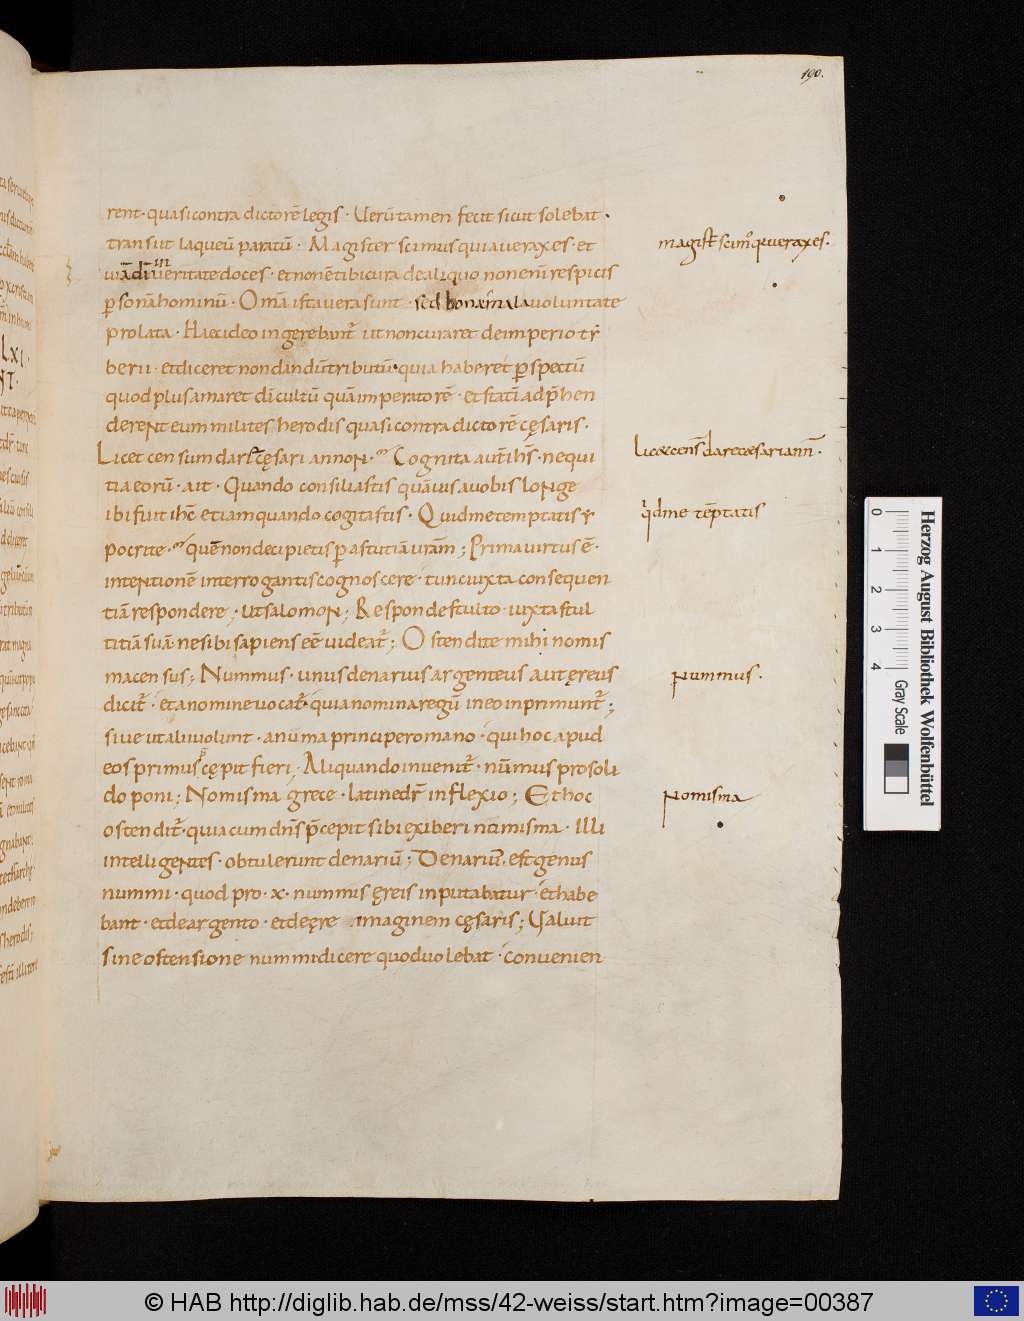 190.
rent · quasi contra dictorē legis · Uerūtamen fecit sicut solebat ·
transiit laqueū paratū · Magister scimus quia uerax es · et
uiā dī in ueritate doces · et non ē tibi cura de aliquo non enī respicis
p̲sonā hominū · Om̄a ista uera sunt · sed bona mala uoluntate
prolata · Haec ideo ingerebant̄ ut non curaret de imperio ty
berii · et diceret non dandū tributū · quia haberet p̲spectū
quod plus amaret dī cultū quā imperatorē · et statī adp̄hen
derent eum milites herodis quasi contra dictorē cęsaris ·
Licet censum dare cęsari an non · Cognita aut̄ ih̄s · nequi
tia eorū · ait · Quando consiliastis quāuis a uobis longe
ibi fuit ih̄c etiam quando cogitastis · Quid me temptatis y
pocrite · quē non decipietis p̲ astutiā ur̄am ; Prima uirtus ē ·
intentionē interrogantis cognoscere · tunc iuxta consequen
tiā respondere ; ut salomon ; Responde stulto · iuxta stul
titiā suā · ne sibi sapiens eē uideat̄ ; Ostendite mihi nomis
ma census ; Nummus · unus denarius argenteus aut ęreus
dicit̄ · et a nomine uocat̄ · quia nomina regū in eo inprimunt̄ ;
siue ut alii uolunt · a numa principe romano · qui hoc apud
eos primus cępit fieri ; Aliquando inuenit̄ · nūmus pro soli
do poni ; Nomisma grece · latine dr̄ inflexio ; Et hoc
ostendit̄ · quia cum dn̄s p̄cepit sibi exiberi nomisma · Illi
intelligentes · obtulerunt denariū ; Denarius · est genus
nummi · quod pro · x · nummis ęreis inputabatur · et habe
bant · et de argento · et de ęre imaginem cęsaris ; Ualuit
sine ostensione nummi dicere quod uolebat · conuenien
magist̄ scim' q̄ uerax es ·
Licet cens̄ dare cesari an n̄ ·
qid me tēptatis
Nummus ·
Nomisma
LXI ·
NT ·
0 1 2 3 4
Gray Scale
Herzog August Bibliothek Wolfenbüttel
© HAB http://diglib.hab.de/mss/42-weiss/start.htm?image=00387